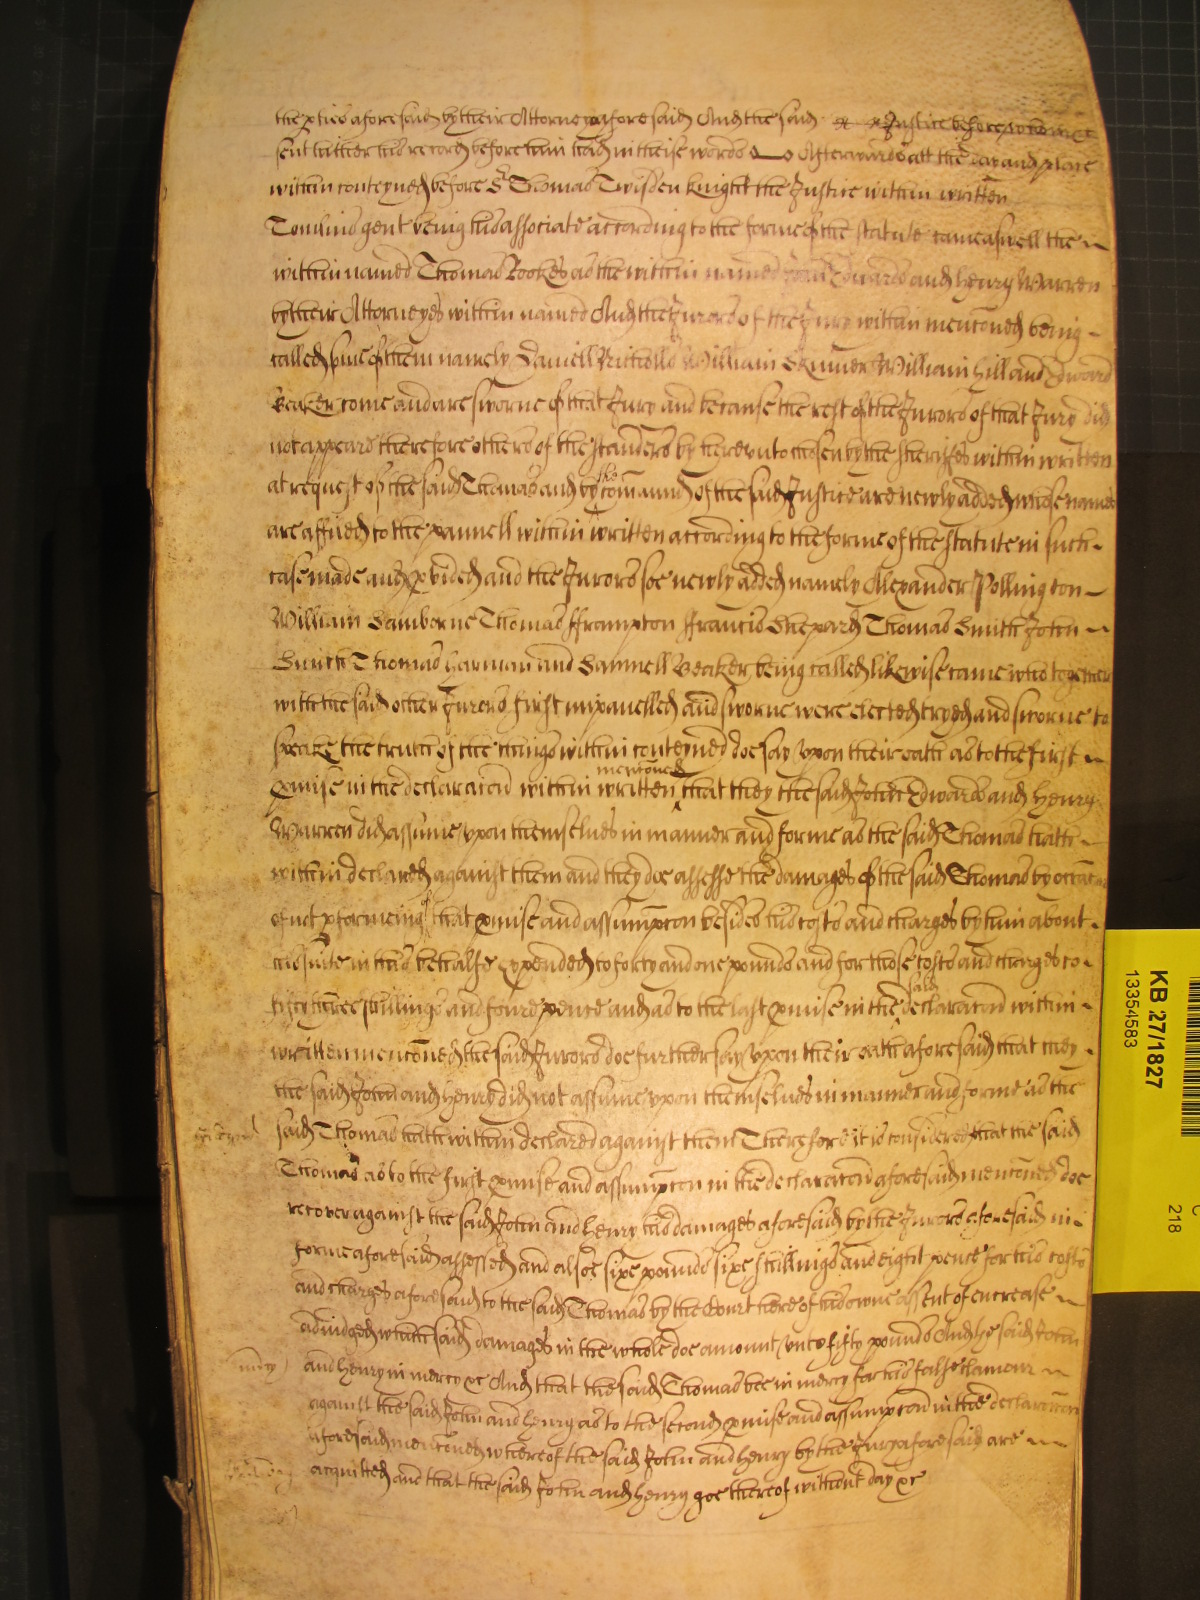 the pties aforesaid by their Attorneys aforesaid And the said Justice before whome &c
sent hither his record before him had in theise words Afterwards att the day and place
within conteyned before Sr Thomas Twisden Knight the Justice within written
Tomlins gent being his associate according to the forme of the statute came aswell the
within named Thomas Rookes as the within named John Edwards and Henry Warren
by their Attorneyes within named And the Jurors of the Jury within menconed being
called some of them namely Daniell Nicholls William Skinner William Hill and Edward
Beaker come and are sworne of that Jury and because the rest of the Jurors of that Jury did
not appeare therefore others of the standers by hereunto chosen by the sheriffes within written
at request of the said Thomas and by the comaund of the said Justice are newly added whose names
are affiled to the pannell within written according to the forme of the statute in such
case made and pvided and the Jurors soe newly added namely Alexander Pollington
William Samborne Thomas Frampton ffrancis Shepard Thomas Smith John
Smith Thomas Harman and Samuell Beaker being called likewise came who together
with the said other Jurors first impanelled and sworne were elected tryed and sworne to
speake the truth of the things within conteyned doe say upon their oath as to the first
pmise in the declaracon within written menconed that they the said John Edwards and Henry
Warren did assume upon themselves in manner and forme as the said Thomas hath
within declared against them and they doe assesse the damages of the said Thomas by occacon
of not pforming of that pmise and assumpcon besides his costs and charges by him about
his suite in this behalfe expended to forty and one pounds and for those costs and charges to
fifty three shillings and foure pence and as to the last pmise in the said declaracon within
written menconed the said Jurors doe further say upon their oath aforesaid that they
the said John and Henry did not assume upon themselves in manner and forme as the
said Thomas hath within declared against them Therefore it is considered that the said
Thomas as to the first pmise and assumpcon in the declaracon aforesaid menconed doe
recover against the said John and Henry his damages aforesaid by the Jurors aforesaid in
forme aforesaid assessed and alsoe sixe pounds sixe shillings and eight pence for his costs
and charges aforesaid to the said Thomas by the Court here of his owne assent of encrease
adiudged which said damages in the whole doe amount unto fifty pounds And the said John
and Henry in mercy &c And that the said Thomas bee in mercy for his false clamour
against the said John and Henry as to the second pmise and assumpcon in the declaracon
aforesaid menconed whereof the said John and Henry by the Jury aforesaid are
acquitted and that the said John and Henry goe thereof without day &c
KB 27/1827
13354583
218